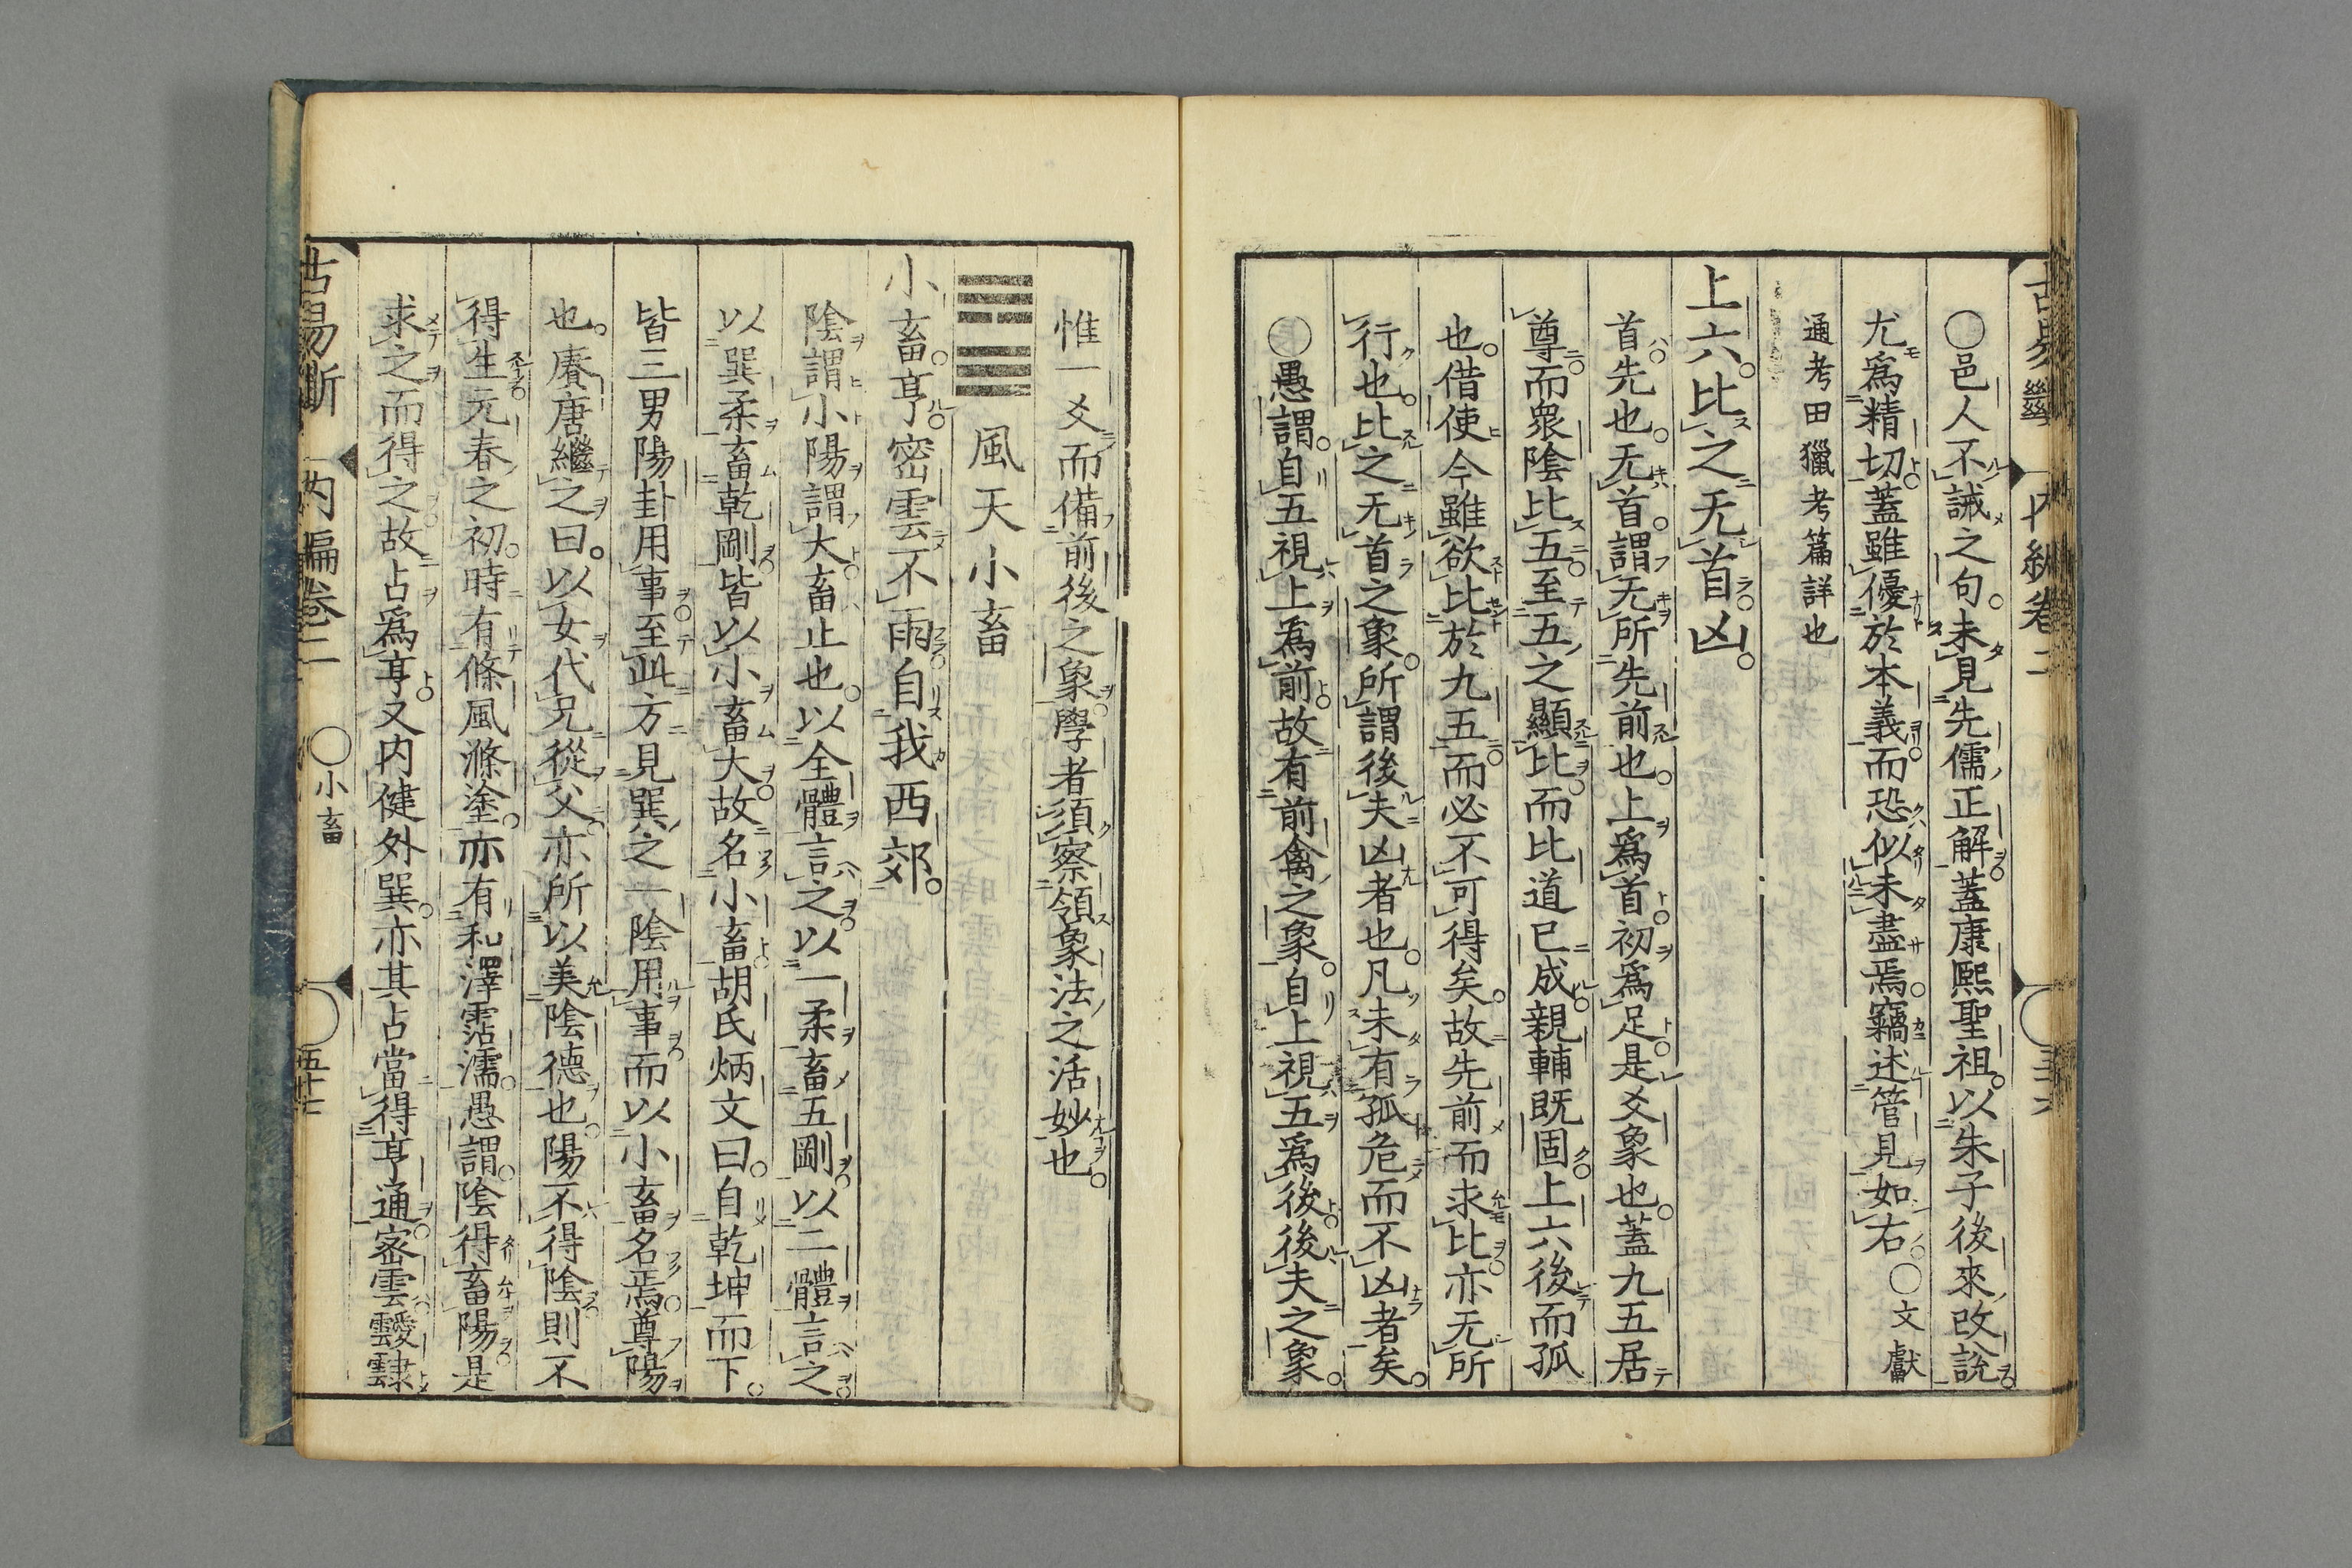 〇邑人不誡之句未見先儒正解蓋康熙聖祖以朱子後來改說
尤爲精切蓋雖優於本義而恐似未盡焉竊述管見如右〇文獻
通考田獵考篇詳也
上六比之无首凶
首先也无首謂无所先前也上爲首初爲足是爻象也蓋九五居
尊而衆陰比五至五之顯比而比道已成親輔既固上六後而孤
也借使今雖欲比於九五而必不可得矣故先前而求比亦无所
行也比之无首之象所謂後夫凶者也凡未有孤危而不凶者矣
〇愚謂自五視上爲前故有前禽之象自上視五爲後後夫之象
惟一爻而備前後之象學者須察領象法之活妙也
風天小畜
小畜亨密雲不雨自我西郊
陰謂小陽謂大畜止也以全體言之以一柔畜五剛以二體言之
以巽柔畜乾剛皆以小畜大故名小畜胡氏炳文曰自乾坤而下
皆三男陽卦用事至此方見巽之一陰用事而以小畜名焉尊陽
也賡唐繼之曰以女代兄從父亦所以美陰德也陽不得陰則不
得生元春之初時有條風滌塗亦有和澤霑濡愚謂陰得畜陽是
求之而得之故占爲亨又内健外巽亦其占當得亨通密雲靉靆
古易斷 内編卷二 〇小畜 五十七